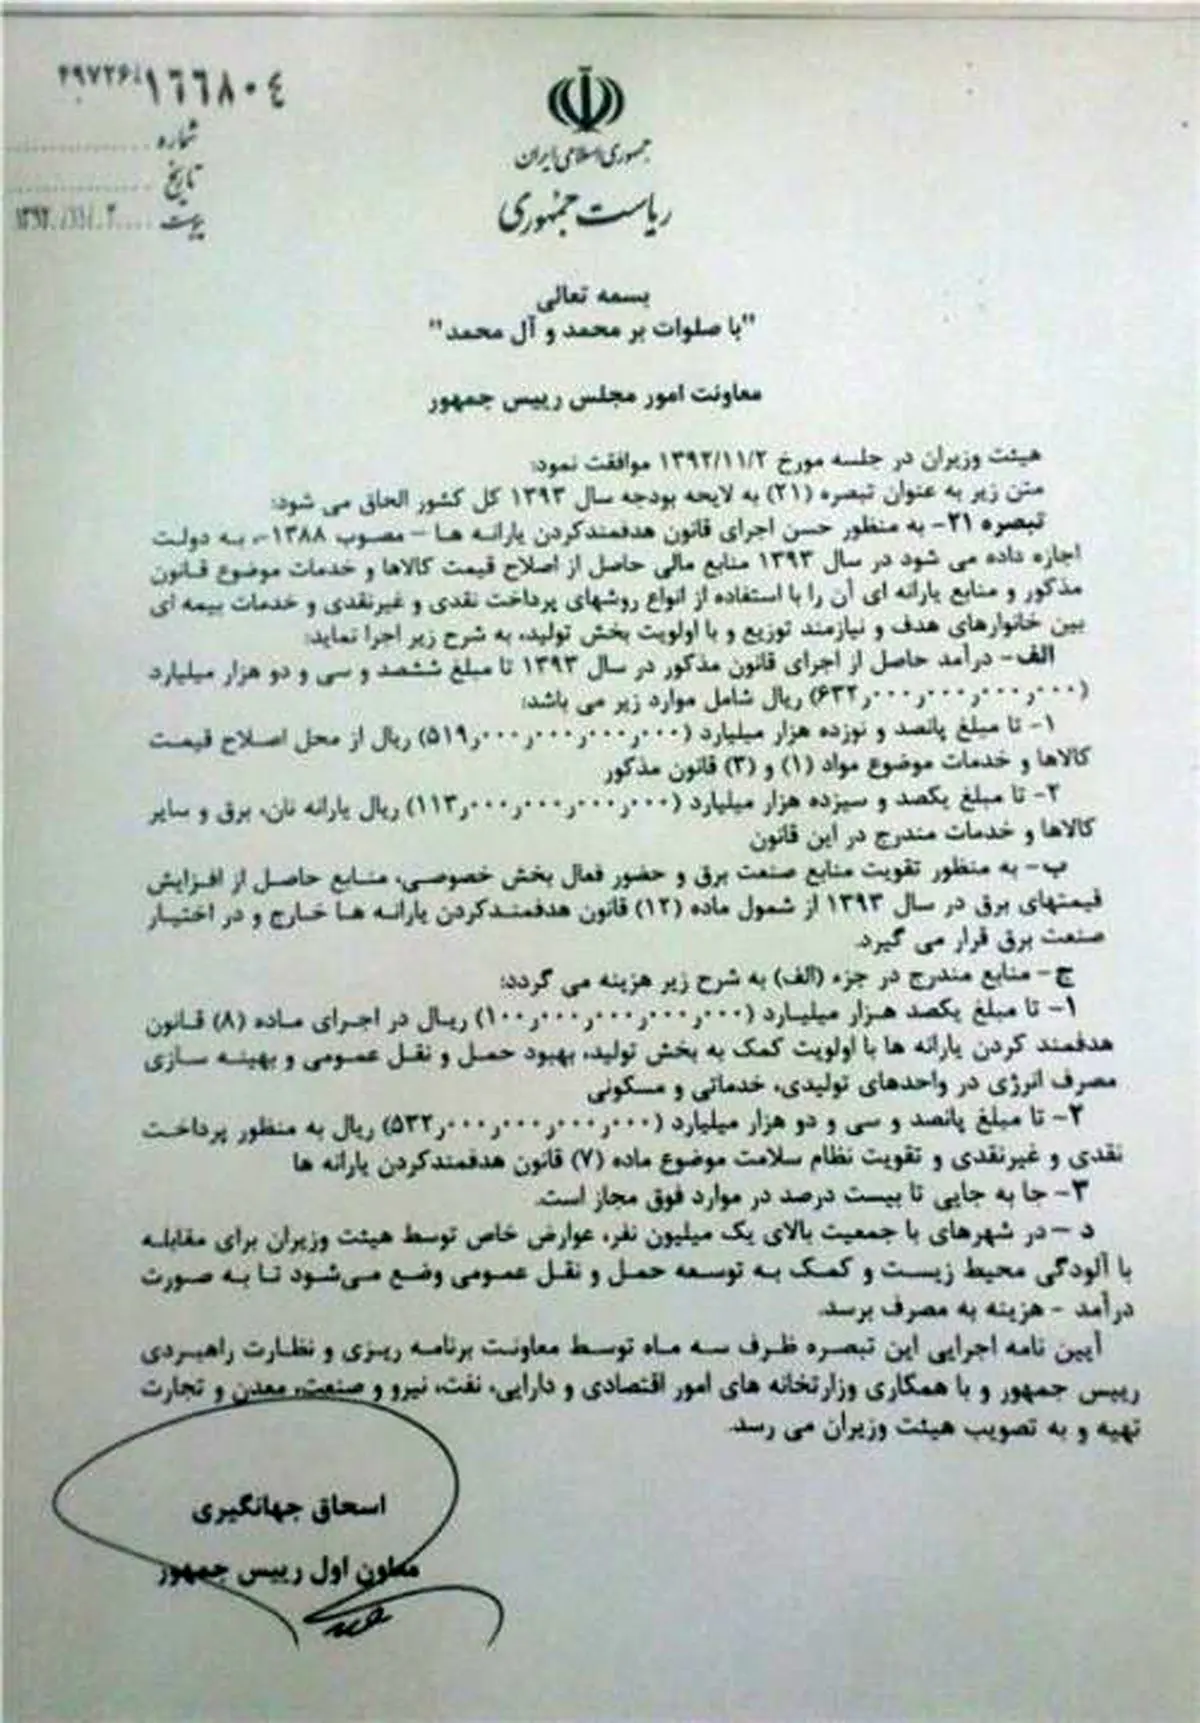 ۴۹۷۲۶/۱۶۶۸۰۴
شماره
تاریخ
پیوست ۱۳۹۲/۱۱/۰۳
جمهوری اسلامی ایران
ریاست جمهوری
بسمه تعالی
"با صلوات بر محمد و آل محمد"
معاونت امور مجلس رییس جمهور
هیئت وزیران در جلسه مورخ ۱۳۹۲/۱۱/۲ موافقت نمود:
متن زیر به عنوان تبصره (۲۱) به لایحه بودجه سال ۱۳۹۳ کل کشور الحاق می شود:
تبصره ۲۱- به منظور حسن اجرای قانون هدفمندکردن یارانه ها – مصوب ۱۳۸۸-، به دولت
اجازه داده می شود در سال ۱۳۹۳ منابع مالی حاصل از اصلاح قیمت کالاها و خدمات موضوع قانون
مذکور و منابع یارانه ای آن را با استفاده از انواع روشهای پرداخت نقدی و غیرنقدی و خدمات بیمه ای
بین خانوارهای هدف و نیازمند توزیع و با اولویت بخش تولید، به شرح زیر اجرا نماید:
الف- درآمد حاصل از اجرای قانون مذکور در سال ۱۳۹۳ تا مبلغ ششصد و سی و دو هزار میلیارد
(۶۳۲٫۰۰۰٫۰۰۰٫۰۰۰٫۰۰۰) ریال شامل موارد زیر می باشد:
۱- تا مبلغ پانصد و نوزده هزار میلیارد (۵۱۹٫۰۰۰٫۰۰۰٫۰۰۰٫۰۰۰) ریال از محل اصلاح قیمت
کالاها و خدمات موضوع مواد (۱) و (۳) قانون مذکور
۲- تا مبلغ یکصد و سیزده هزار میلیارد (۱۱۳٫۰۰۰٫۰۰۰٫۰۰۰٫۰۰۰) ریال یارانه نان، برق و سایر
کالاها و خدمات مندرج در این قانون
ب- به منظور تقویت منابع صنعت برق و حضور فعال بخش خصوصی، منابع حاصل از افزایش
قیمتهای برق در سال ۱۳۹۳ از شمول ماده (۱۲) قانون هدفمندکردن یارانه ها خارج و در اختیار
صنعت برق قرار می گیرد.
ج- منابع مندرج در جزء (الف) به شرح زیر هزینه می گردد:
۱- تا مبلغ یکصد هزار میلیارد (۱۰۰٫۰۰۰٫۰۰۰٫۰۰۰٫۰۰۰) ریال در اجرای ماده (۸) قانون
هدفمند کردن یارانه ها با اولویت کمک به بخش تولید، بهبود حمل و نقل عمومی و بهینه سازی
مصرف انرژی در واحدهای تولیدی، خدماتی و مسکونی
۲- تا مبلغ پانصد و سی و دو هزار میلیارد (۵۳۲٫۰۰۰٫۰۰۰٫۰۰۰٫۰۰۰) ریال به منظور پرداخت
نقدی و غیرنقدی و تقویت نظام سلامت موضوع ماده (۷) قانون هدفمندکردن یارانه ها
۳- جا به جایی تا بیست درصد در موارد فوق مجاز است.
د – در شهرهای با جمعیت بالای یک میلیون نفر، عوارض خاص توسط هیئت وزیران برای مقابله
با آلودگی محیط زیست و کمک به توسعه حمل و نقل عمومی وضع می‌شود تا به صورت
درآمد - هزینه به مصرف برسد.
آیین نامه اجرایی این تبصره ظرف سه ماه توسط معاونت برنامه ریزی و نظارت راهبردی
رییس جمهور و با همکاری وزارتخانه های امور اقتصادی و دارایی، نفت، نیرو و صنعت، معدن و تجارت
تهیه و به تصویب هیئت وزیران می رسد.
اسحاق جهانگیری
معاون اول رییس جمهور